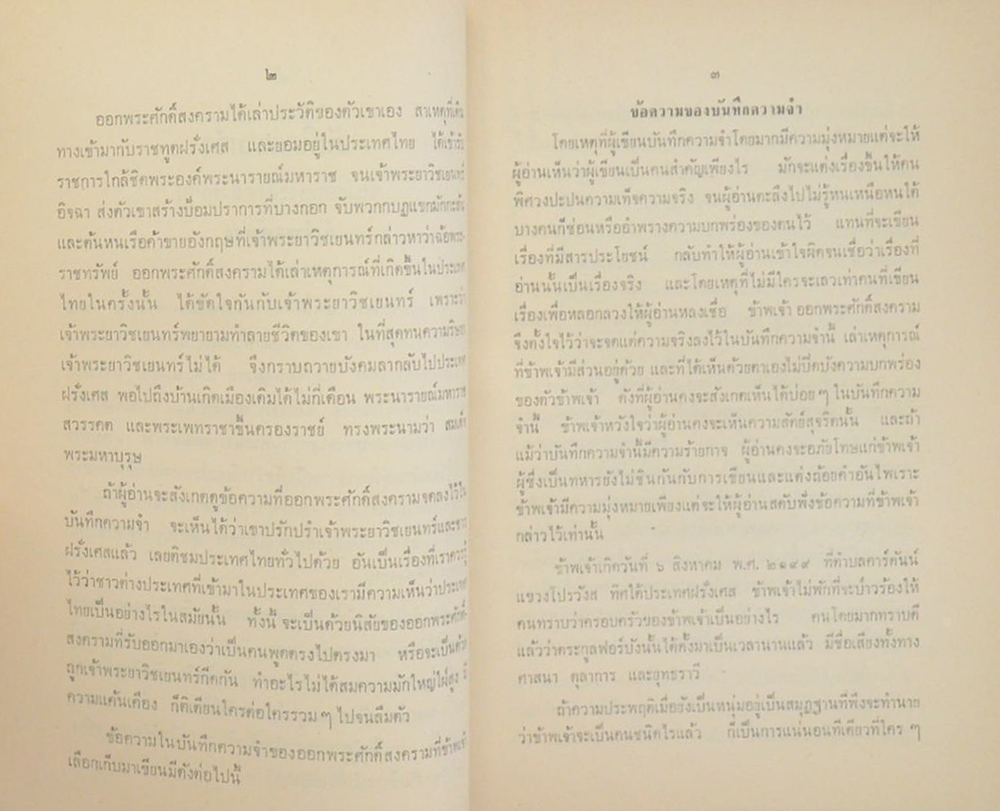 ๒
ออกพระศักดิ์สงครามได้เล่าประวัติของตัวเขาเอง สาเหตุที่เดิน
ทางเข้ามากับราชทูตฝรั่งเศส และยอมอยู่ในประเทศไทย ได้เข้ารับ
ราชการใกล้ชิดพระองค์พระนารายณ์มหาราช จนเจ้าพระยาวิชเยนทร์
อิจฉา ส่งตัวเขาสร้างป้อมปราการที่บางกอก จับพวกกบฏแขกมักกะสัน
และต้นหนเรือค้าขายอังกฤษที่เจ้าพระยาวิชเยนทร์กล่าวหาว่าฉ้อพระ-
ราชทรัพย์ ออกพระศักดิ์สงครามได้เล่าเหตุการณ์ที่เกิดขึ้นในประเทศ
ไทยในครั้งนั้น ได้ขัดใจกันกับเจ้าพระยาวิชเยนทร์ เพราะว่า
เจ้าพระยาวิชเยนทร์พยายามทำลายชีวิตของเขา ในที่สุดทนความริษยา
เจ้าพระยาวิชเยนทร์ไม่ได้ จึงกราบถวายบังคมลากลับไปประเทศ
ฝรั่งเศส พอไปถึงบ้านเกิดเมืองเดิมได้ไม่กี่เดือน พระนารายณ์มหาราช
สวรรคต และพระเพทราชาขึ้นครองราชย์ ทรงพระนามว่า สมเด็จ
พระมหาบุรุษ
ถ้าผู้อ่านจะสังเกตดูข้อความที่ออกพระศักดิ์สงครามจดลงไว้ใน
บันทึกความจำ จะเห็นได้ว่าเขาปรักปรำเจ้าพระยาวิชเยนทร์และชาว
ฝรั่งเศสแล้ว เลยติชมประเทศไทยทั่วไปด้วย อันเป็นเรื่องที่เราควรรู้
ไว้ว่าชาวต่างประเทศที่เข้ามาในประเทศของเรามีความเห็นว่าประเทศ
ไทยเป็นอย่างไรในสมัยนั้น ทั้งนี้ จะเป็นด้วยนิสัยของออกพระศักดิ์
สงครามที่รับออกมาเองว่าเป็นคนพูดตรงไปตรงมา หรือจะเป็นด้วย
ถูกเจ้าพระยาวิชเยนทร์กีดกัน ทำอะไรไม่ได้สมความมักใหญ่ใฝ่สูง มี
ความแค้นเคือง ก็ติเตียนใครต่อใครรวม ๆ ไปจนลืมตัว
ข้อความในบันทึกความจำของออกพระศักดิ์สงครามที่ข้าพเจ้า
เลือกเก็บมาเขียนมีดังต่อไปนี้
๓
ข้อความของบันทึกความจำ
โดยเหตุที่ผู้เขียนบันทึกความจำโดยมากมีความมุ่งหมายแต่จะให้
ผู้อ่านเห็นว่าผู้เขียนเป็นคนสำคัญเพียงไร มักจะแต่งเรื่องขึ้นให้คน
พิศวงปะปนความเท็จความจริง จนผู้อ่านตะลึงไปไม่รู้หนเหนือหนใต้
บางคนก็ซ่อนหรืออำพรางความบกพร่องของตนไว้ แทนที่จะเขียน
เรื่องที่มีสารประโยชน์ กลับทำให้ผู้อ่านเข้าใจผิดจนเชื่อว่าเรื่องที่
อ่านนั้นเป็นเรื่องจริง และโดยเหตุที่ไม่มีใครจะเลวเท่าคนที่เขียน
เรื่องเพื่อหลอกลวงให้ผู้อ่านหลงเชื่อ ข้าพเจ้า ออกพระศักดิ์สงคราม
จึงตั้งใจไว้ว่าจะจดแต่ความจริงลงไว้ในบันทึกความจำนี้ เล่าเหตุการณ์
ที่ข้าพเจ้ามีส่วนอยู่ด้วย และที่ได้เห็นด้วยตาเองไม่ปิดบังความบกพร่อง
ของตัวข้าพเจ้า ดังที่ผู้อ่านคงจะสังเกตเห็นได้บ่อย ๆ ในบันทึกความ
จำนี้ ข้าพเจ้าหวังใจว่าผู้อ่านคงจะเห็นความสัตย์สุจริตนั้น และถ้า
แม้ว่าบันทึกความจำนี้มีความร้ายกาจ ผู้อ่านคงจะอภัยโทษแก่ข้าพเจ้า
ผู้ซึ่งเป็นทหารยังไม่ชินกันกับการเขียนและแต่งถ้อยคำอันไพเราะ
ข้าพเจ้ามีความมุ่งหมายเพียงแต่จะให้ผู้อ่านสดับฟังข้อความที่ข้าพเจ้า
กล่าวไว้เท่านั้น
ข้าพเจ้าเกิดวันที่ ๖ สิงหาคม พ.ศ. ๒๑๙๙ ที่ตำบลคาร์ดันน์
แขวงโปรวังส์ ทิศใต้ประเทศฝรั่งเศส ข้าพเจ้าไม่พักที่จะป่าวร้องให้
คนทราบว่าครอบครัวของข้าพเจ้าเป็นอย่างไร คนโดยมากทราบดี
แล้วว่าตระกูลฟอร์บังนั้นได้ตั้งมาเป็นเวลานานแล้ว มีชื่อเสียงทั้งทาง
ศาสนา ตุลาการ และยุทธราวี
ถ้าความประพฤติเมื่อยังเป็นหนุ่มอยู่เป็นสมุฏฐานที่พึงจะทำนาย
ว่าข้าพเจ้าจะเป็นคนชนิดไรแล้ว ก็เป็นการแน่นอนทีเดียวที่ใคร ๆ